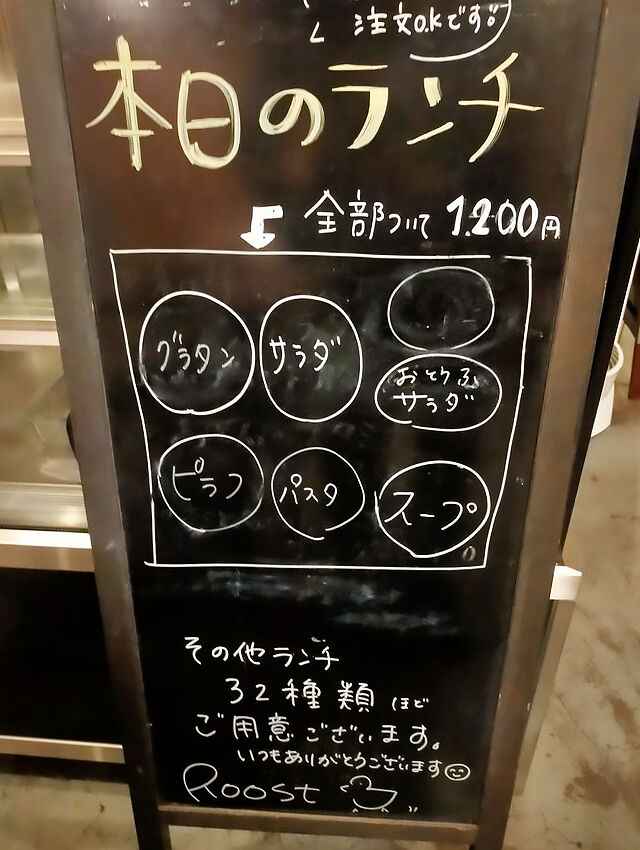 注文O.Kです!!
本日のランチ
全部ついて 1.200円
グラタン
サラダ
おとうふ
サラダ
ピラフ
パスタ
スープ
その他ランチ
32種類ほど
ご用意ございます。
いつもありがとうございます
Roost